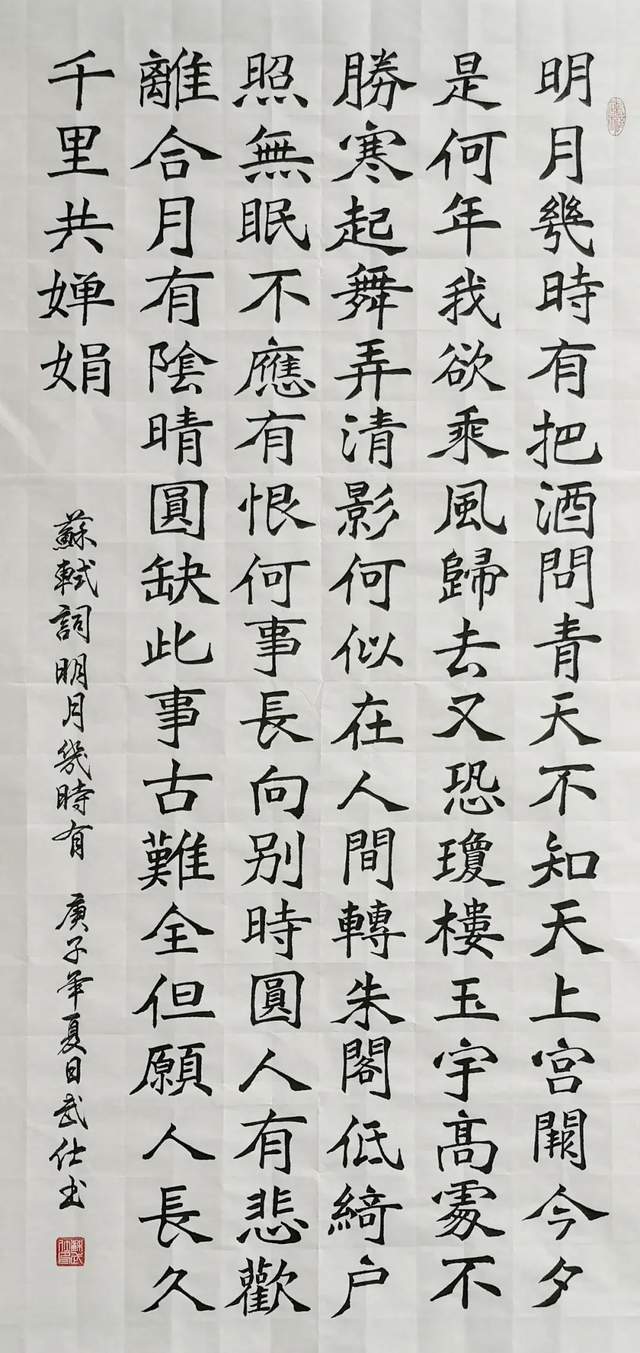 明月幾時有把酒問青天不知天上宮闕今夕
是何年我欲乘風歸去又恐瓊樓玉宇高處不
勝寒起舞弄清影何似在人間轉朱閣低綺户
照無眠不應有恨何事長向别時圓人有悲歡
離合月有陰晴圓缺此事古難全但願人長久
千里共嬋娟
蘇軾詞明月幾時有 庚子年夏日武仕书